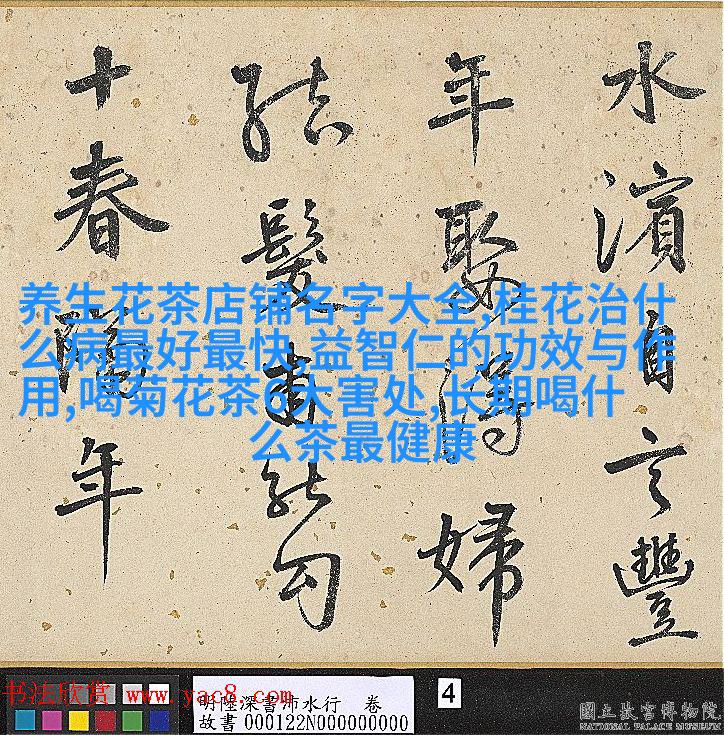 水濱自言豐
年娶得婦
結髮能勾
十春年
养生花茶店铺名字大全,桂花治什
么病最好最快,益智仁的功效与作
用,喝菊花茶6大害处,长期喝什
么茶最健康
书法欣赏 www.yac8.com
明陸深書水行 卷
故書000122N000000000
4
國立故宮博物院
NATIONAL PALACE MUSEUM